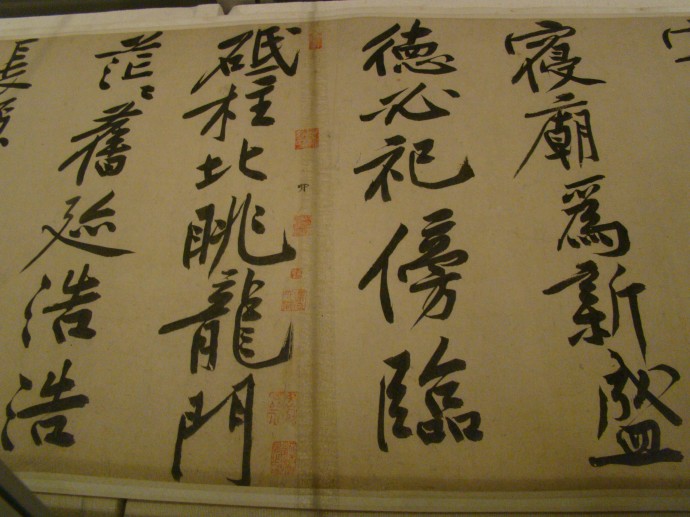 寢廟爲新盛
德必祀傍臨
砥柱北眺龍門
茫〻舊迹浩浩
長源